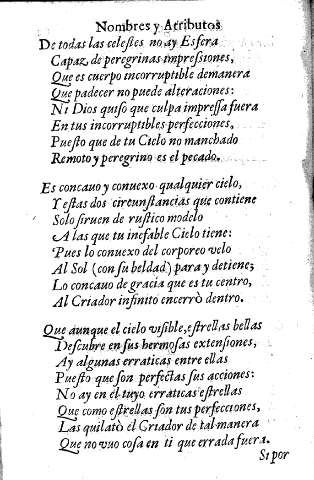 Nombres y Atributos
De todas las celestes no ay Esfera
Capaz de peregrinas impressiones,
Que es cuerpo incorruptible demanera
Que padecer no puede alteraciones:
Ni Dios quiso que culpa impressa fuera
En tus incorruptibles perfecciones,
Puesto que de tu Cielo no manchado
Remoto y peregrino es el pecado.
Es concauo y conuexo qualquier cielo,
Y estas dos circunstancias que contiene
Solo siruen de rustico modelo
A las que tu inefable Cielo tiene:
Pues lo conuexo del corporeo velo
Al Sol (con su beldad) para y detiene;
Lo concauo de gracia que es tu centro,
Al Criador infinito encerrò dentro.
Que aunque el cielo visible, estrellas bellas
Descubre en sus hermosas extensiones,
Ay algunas erraticas entre ellas
Puesto que son perfectas sus acciones:
No ay en el tuyo erraticas estrellas
Que como estrellas son tus perfecciones,
Las quilatò el Criador de tal manera
Que no vuo cosa en ti que errada fuera.
Si por